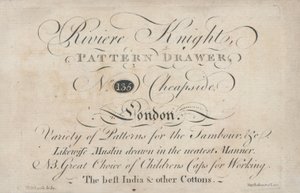 Riviere Knight,
PATTERN DRAWER,
No. 135 Cheapside
London.
Variety of Patterns for the Tambour, &c.
Likewise Muslin drawn in the neatest Manner.
NB. Great Choice of Childrens Caps for Working
The best India & other Cottons.